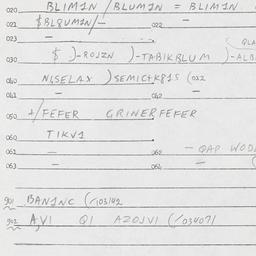 020 BLIM1N / BLUM1N = BLIM1N
021 $BL8UM1N/- 022 -
023 -
030 $ )-ROJZN )-TABIKBLUM )-ALB
040 N(SELAX )SEMIC+K81S (022
041 - 042 -
050 +/FEFER GRINERFEFER
060 TIKV1
061 - 062 - QAP WOD
063 - 064 -
901 BAN1NC (/103142
902 A,V1 Q1 AZOJV1 (/034071